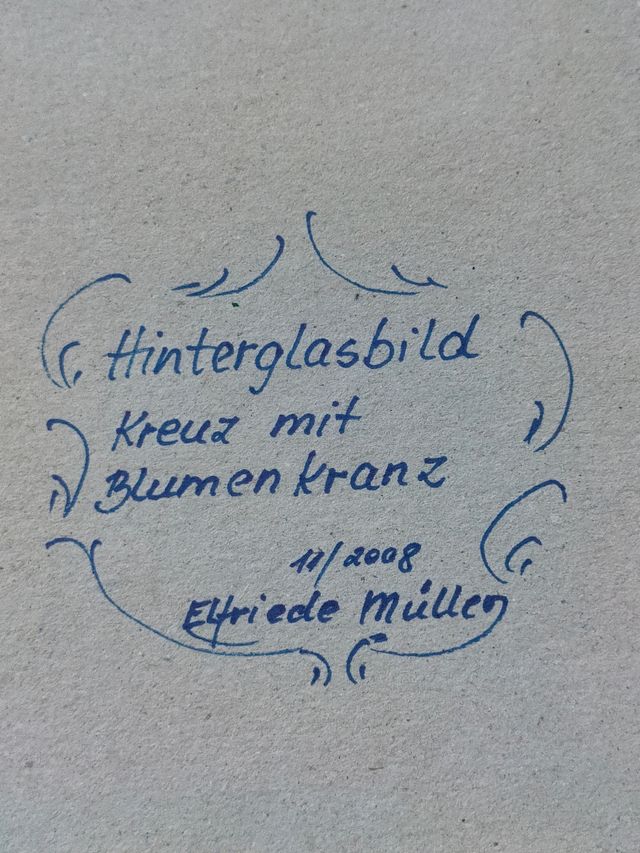 Hinterglasbild
Kreuz mit
Blumenkranz
11/2008
Elfriede Müller